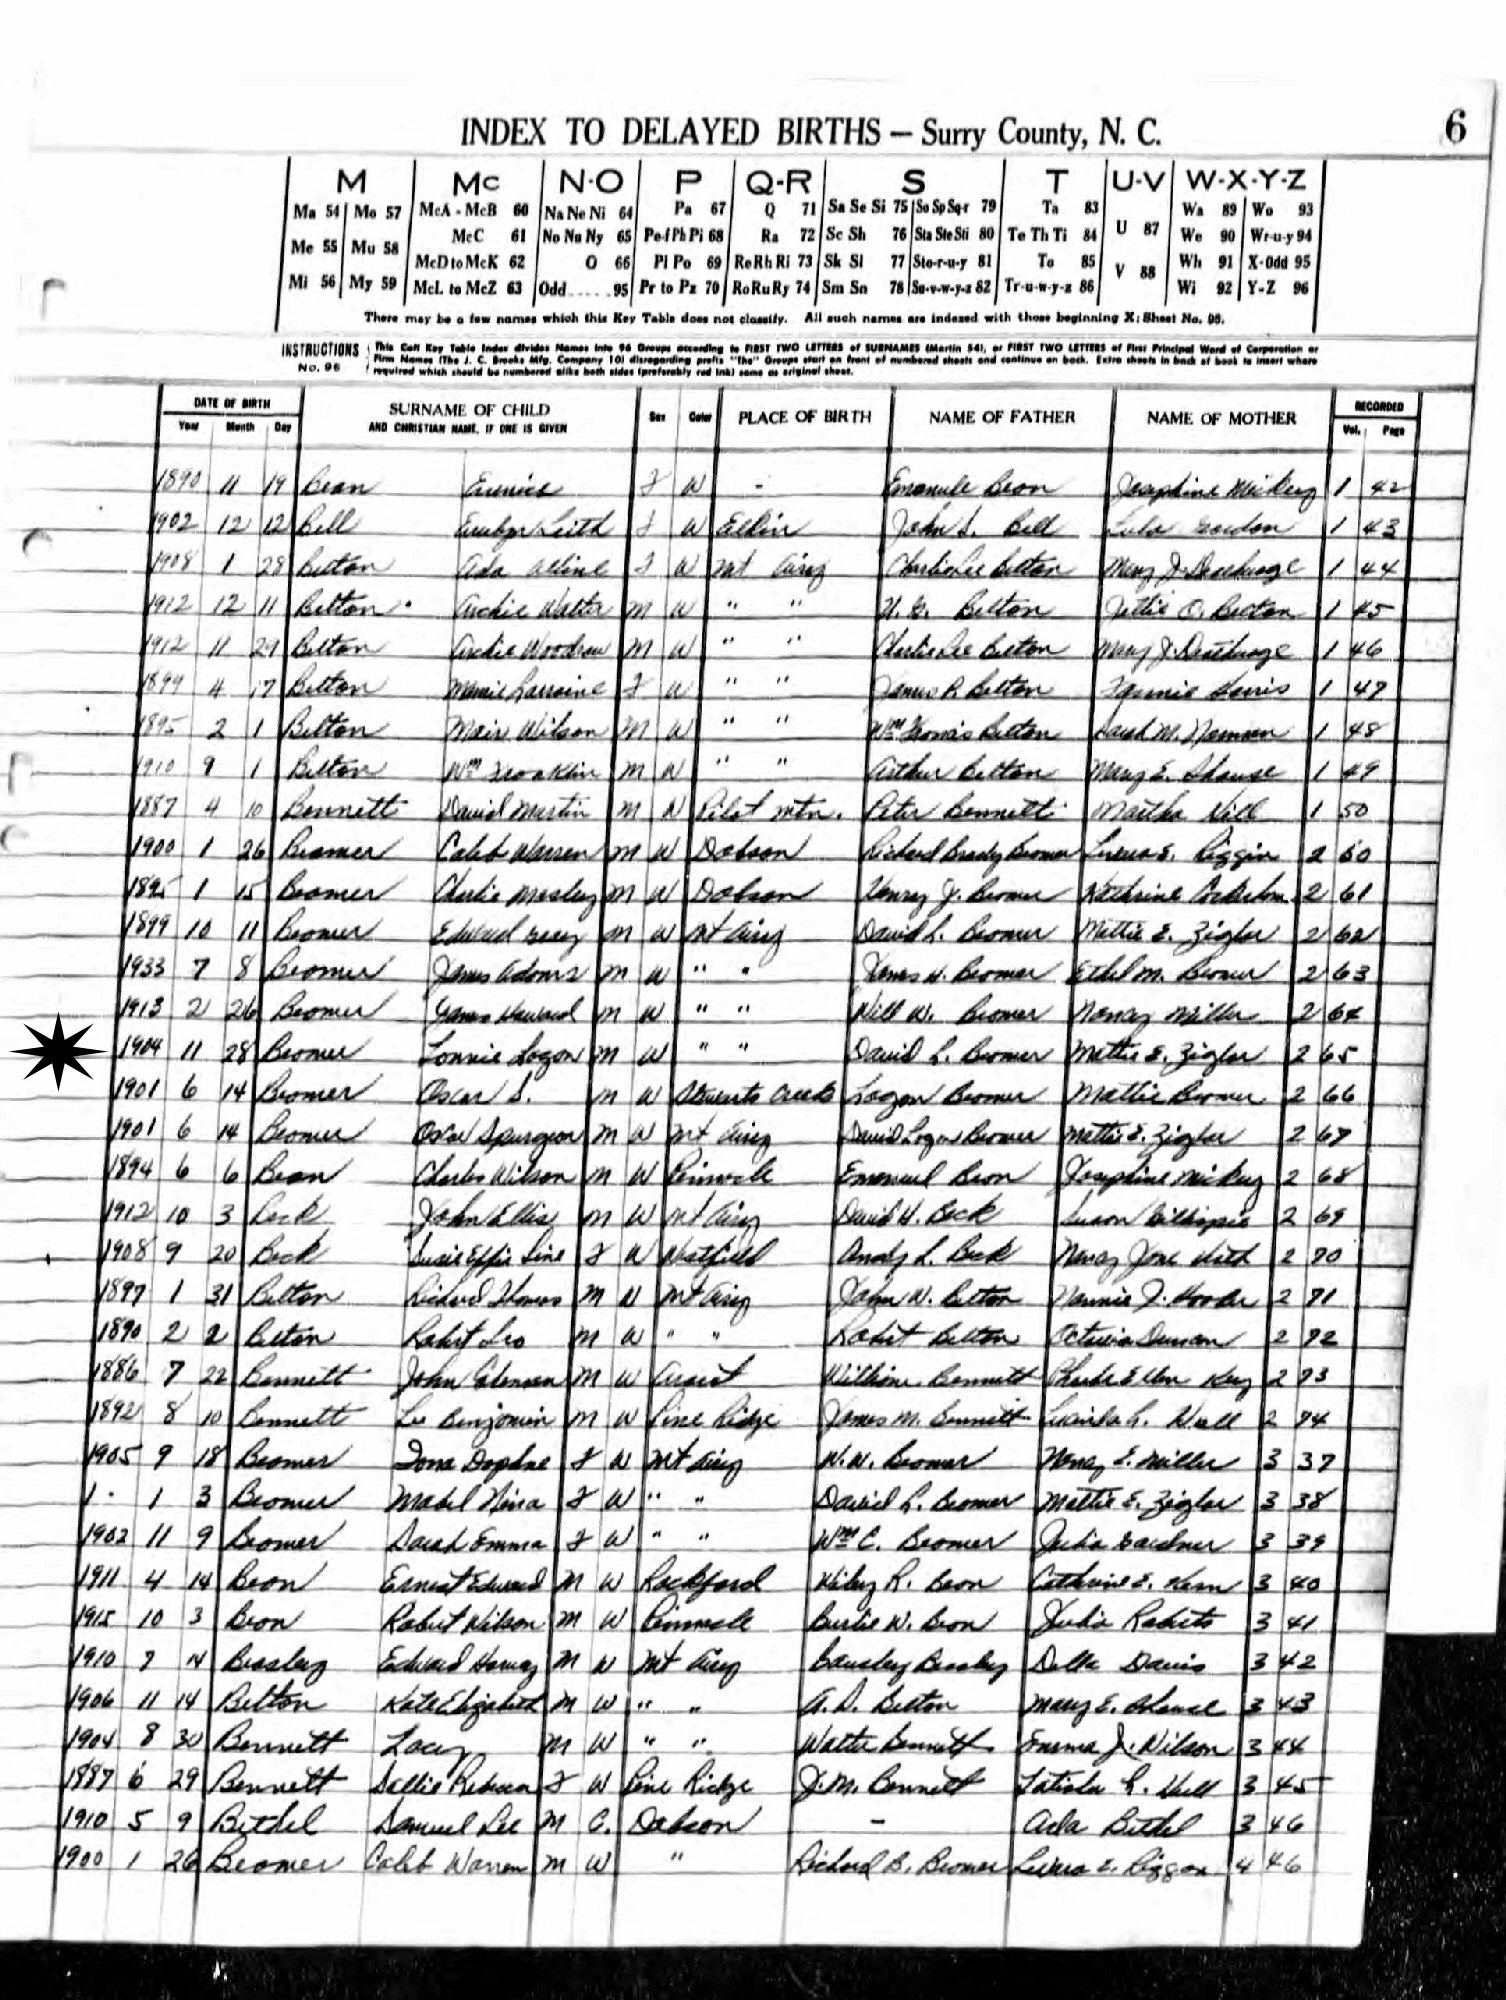 INDEX TO DELAYED BIRTHS — Surry County, N. C.
6
M Mc N-O P Q-R S T U-V W-X-Y-Z
Ma 54 Mo 57 McA - McB 60 Na Ne Ni 64 Pa 67 Q 71 Sa Se Si 75 So Sp Sq-r 79 Ta 83 U 87 Wa 89 Wo 93
Me 55 Mu 58 McC 61 No Nu Ny 65 Pe-f Ph Pi 68 Ra 72 Sc Sh 76 Sta Ste Sti 80 Te Th Ti 84 We 90 Wr-u-y 94
McD to McK 62 O 66 Pl Po 69 Re Rh Ri 73 Sk Sl 77 Sto-r-u-y 81 To 85 V 88 Wh 91 X-Odd 95
Mi 56 My 59 McL to McZ 63 Odd.....95 Pr to Pz 70 Ro Ru Ry 74 Sm Sn 78 Su-v-w-y-z 82 Tr-u-w-y-z 86 Wi 92 Y-Z 96
There may be a few names which this Key Table does not classify. All such names are indexed with those beginning X; Sheet No. 95.
INSTRUCTIONS No. 96
This Cott Key Table Index divides Names into 96 Groups according to FIRST TWO LETTERS of SURNAMES (Martin 54), or FIRST TWO LETTERS of First Principal Word of Corporation or
Firm Names (The J. C. Brooks Mfg. Company 10) disregarding prefix "The" Groups start on front of numbered sheets and continue on back. Extra sheets in back of book to insert where
required which should be numbered alike both sides (preferably red ink) same as original sheet.
DATE OF BIRTH SURNAME OF CHILD Sex Color PLACE OF BIRTH NAME OF FATHER NAME OF MOTHER RECORDED
Year Month Day AND CHRISTIAN NAME, IF ONE IS GIVEN Vol. Page
1890 11 19 Bean Eunice F W - Emanule Bean Josephine Mickey 1 42
1902 12 12 Bell Leith F W Elkin John S. Bell Lula Gordon 1 43
1908 1 28 Belton Ada Alline F W Mt Airy Charlie Lee Belton Mary J. 1 44
1912 12 11 Belton Archie Walter M W " " Belton Jettie O. Belton 1 45
1912 11 29 Belton Archie Woodrow M W " " Charlie Lee Belton Mary J. 1 46
1899 4 17 Belton Mamie Larraine F W " " James P. Belton Fannie Harris 1 47
1895 2 1 Belton Wilson M W " " Wm Thomas Belton Sarah M. 1 48
1910 9 1 Belton Wm Franklin M W " " Arthur Belton Mary E. Shouse 1 49
1887 4 10 Bennett David Martin M W Pilot Mtn. Peter Bennett Martha Hill 1 50
1900 1 26 Beamer Caleb Warren M W Dobson Richard Brady Beamer Riggin 2 60
1895 1 15 Beamer Charlie Mosley M W Dobson Henry J. Beamer Kathrine Cockerham 2 61
1899 10 11 Beamer Edward M W Mt Airy David L. Beamer Mattie E. Ziglar 2 62
1933 7 8 Beamer James Adams M W " " James H. Beamer Ethel M. Beamer 2 63
1913 2 26 Beamer James Howard M W " " Will W. Beamer Nancy Miller 2 64
1904 11 28 Beamer Lonnie Logan M W " " David L. Beamer Mattie E. Ziglar 2 65
1901 6 14 Beamer Oscar S. M W Stewarts Creek Logan Beamer Mattie Beamer 2 66
1901 6 14 Beamer Oscar Spurgeon M W Mt Airy David Logan Beamer Mattie E. Ziglar 2 67
1894 6 6 Bean Charles Wilson M W Pinnacle Emanuel Bean Josephine Mickey 2 68
1912 10 3 Beck John Ellis M W Mt Airy David H. Beck Susan Gillispie 2 69
1908 9 20 Beck Susie Effie F W Westfield Andy L. Beck Nancy Jane 2 70
1897 1 31 Belton Richard Thomas M W Mt Airy John W. Belton Nannie J. 2 71
1890 2 2 Belton Robert Leo M W " " Robert Belton Octavia Duncan 2 72
1886 7 22 Bennett John Coleman M W Ararat William Bennett Ellen Key 2 73
1892 8 10 Bennett Lee Benjamin M W Pine Ridge James M. Bennett Hull 2 74
1905 9 18 Beamer Iona Daphne F W Mt Airy W. W. Beamer Nancy E. Miller 3 37
1 3 Beamer Mabel Nina F W " " David L. Beamer Mattie E. Ziglar 3 38
1902 11 9 Beamer Sarah Emma F W " " Wm C. Beamer Julia Gardner 3 39
1911 4 14 Bean Ernest Edward M W Rockford Wiley R. Bean Cathrine E. Kern 3 40
1915 10 3 Bean Robert Wilson M W Pinnacle Bertie W. Bean Julia Roberts 3 41
1910 7 14 Beasley Edward Harvey M W Mt Airy Beasley Della Davis 3 42
1906 11 14 Belton Kate Elizabeth M W " " A. D. Belton Mary E. Shouse 3 43
1904 8 30 Bennett Lacy M W " " Walter Bennett Emma J. Wilson 3 44
1887 6 29 Bennett Sallie Rebecca F W Pine Ridge J. M. Bennett Hull 3 45
1910 5 9 Bethel Samuel Lee M C. Dobson - Ada Bethel 3 46
1900 1 26 Beamer Caleb Warren M W " Richard B. Beamer Riggan 4 46